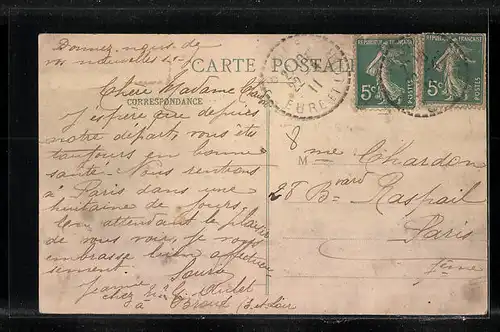 Donnez-nous de
vos nouvelles
CARTE POSTALE
CORRESPONDANCE
Chère Madame
J'espère que depuis
notre départ, vous êtes
toujours en bonne
santé. Nous rentrons
à Paris dans une
huitaine de jours.
En attendant le plaisir
de vous voir, je vous
embrasse bien affectueu
sement.
Jeanne
chez
à Brou (E-et-Loir
11
EURE-ET-L
REPUBLIQUE FRANÇAISE
5c
POSTES
REPUBLIQUE FRANÇAISE
5c
POSTES
Mme Chardon
28 Bvard Raspail
Paris